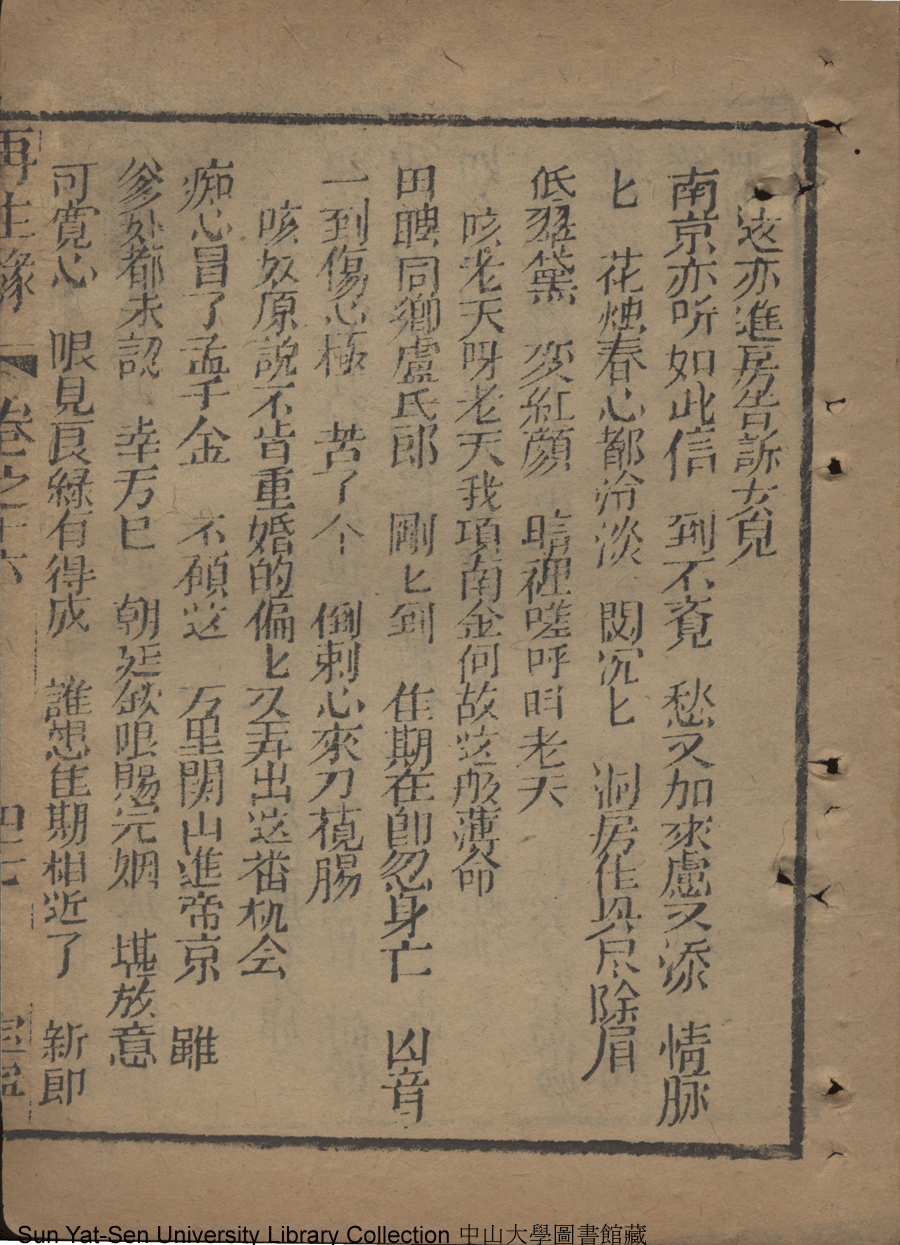 这亦進房告訴女皃
南京亦听如此信　到不覔　愁又加來慮又添　情脉
匕　花燭春心都冷淡　悶沉匕　洞房佳　除眉
低翠黛　変紅顔　暗裡嗟呼叫老天
咳老天呀老天我項南金何故这般薄命
田聘同鄉盧氏郎　剛匕到　佳期在即忽身亡　凶音
一到傷心極　苦了个　倒刺心來刀攪腸
咳奴原説不肯重婚的偏匕又弄出这番机会
痴心冒了孟千金　不碩这　万里関山進帝京　雖
爹处都未認　幸万巳　朝廷欽限賜完姻　堪放意
可寛心　眼見良緣有得成　誰想佳期相近了　新即
再生緣　卷之十六　四七
Sun Yat-Sen University Library Collection 中山大學圖書館藏